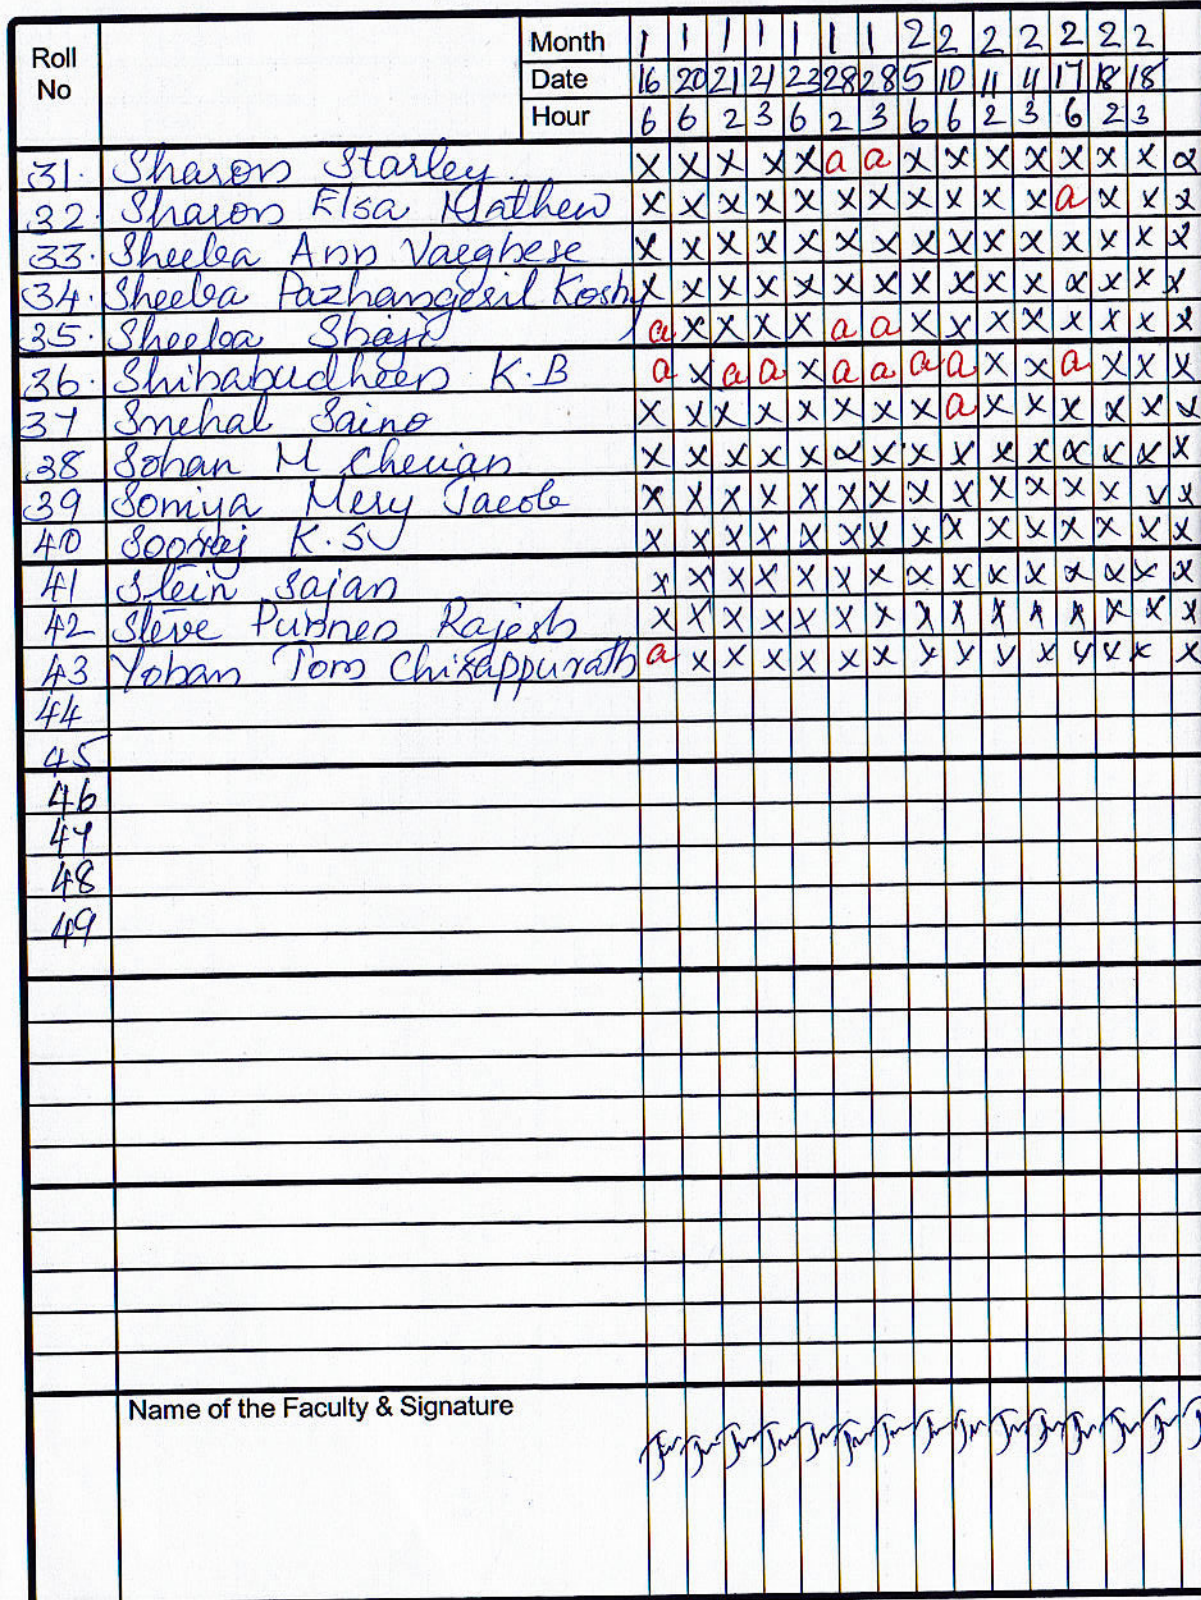 Roll No Month 1 1 1 1 1 1 1 2 2 2 2 2 2 2
Date 16 20 21 21 23 28 28 5 10 11 11 17 18 18
Hour 6 6 2 3 6 2 3 6 6 2 3 6 2 3
31. Sharon Starley. x x x x x a a x x x x x x x x
32. Sharon Elsa Mathew x x x x x x x x x x x a x x x
33. Sheeba Ann Varghese x x x x x x x x x x x x x x x
34. Sheeba Pazhangeril Koshy x x x x x x x x x x x x x x x
35. Sheeba Shaji a x x x x a a x x x x x x x x
36. Shihabudheen K.B a x a a x a a a a x x a x x x
37 Snehal Saino x x x x x x x x a x x x x x x
38 Sohan M Cherian x x x x x x x x x x x x x x x
39 Somiya Mery Jacob x x x x x x x x x x x x x x x
40 Sooraj K.S x x x x x x x x x x x x x x x
41 Stein Sajan x x x x x x x x x x x x x x x
42 Steve Punnen Rajesh x x x x x x x x x x x x x x x
43 Yohan Tom Chirappurath a x x x x x x x x x x x x x x
44
45
46
47
48
49
Name of the Faculty & Signature